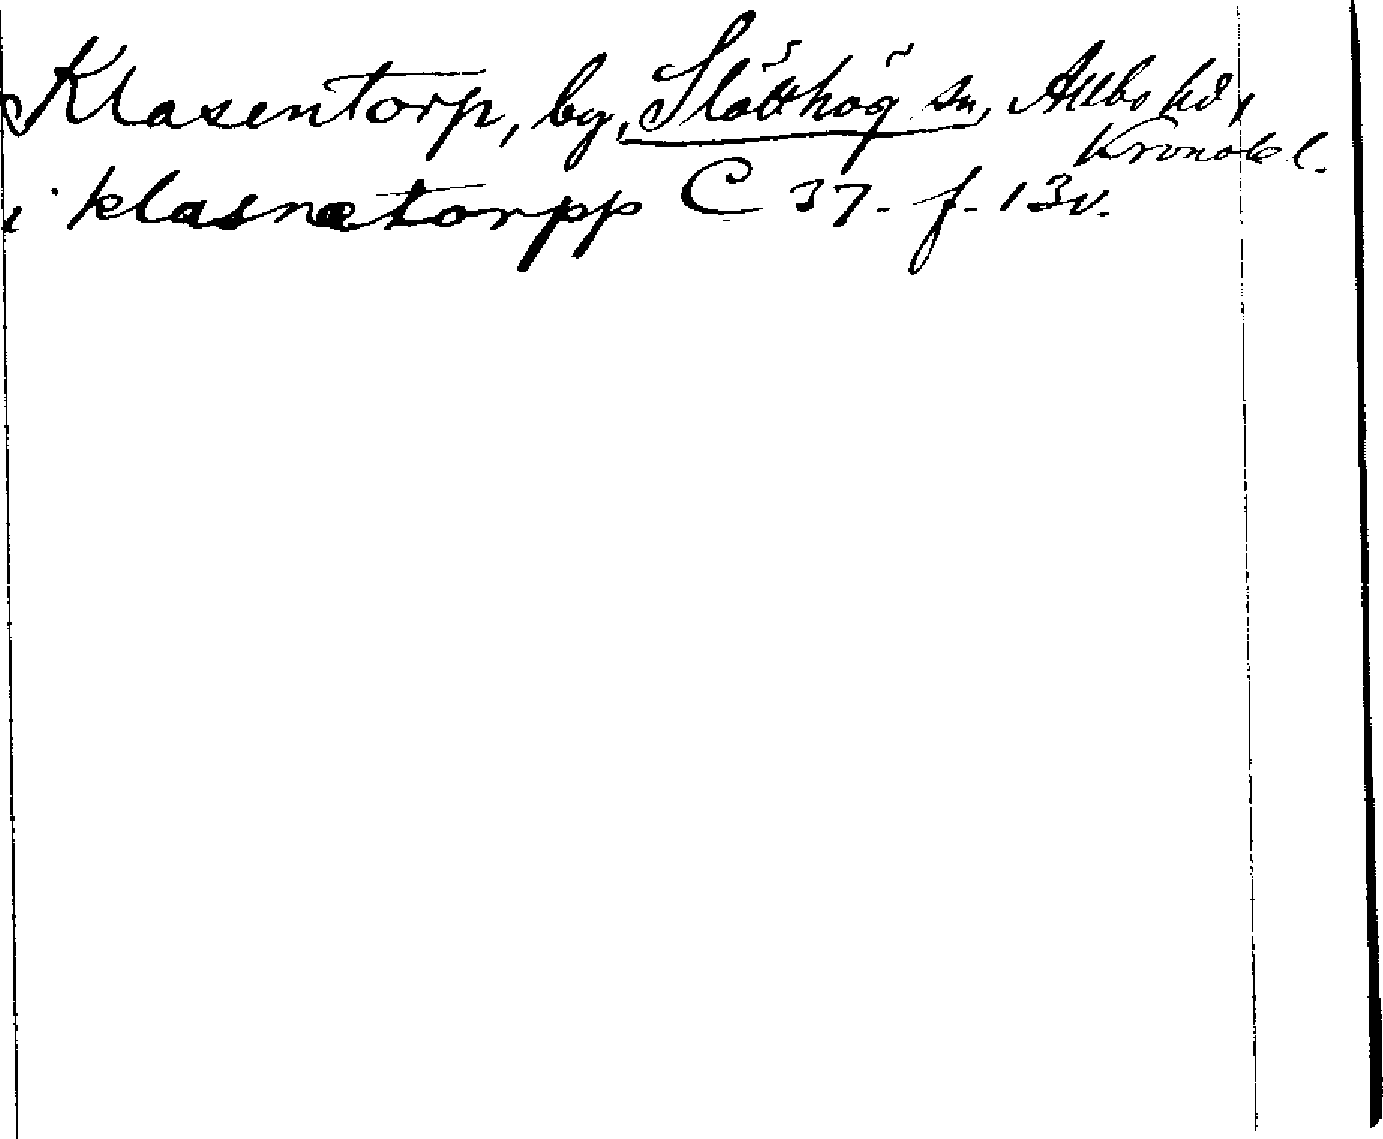 Klasentorp, by, Slätthög sn, Allbo hd,
Kronob l.
i klasnætorpp C 37. f. 13v.